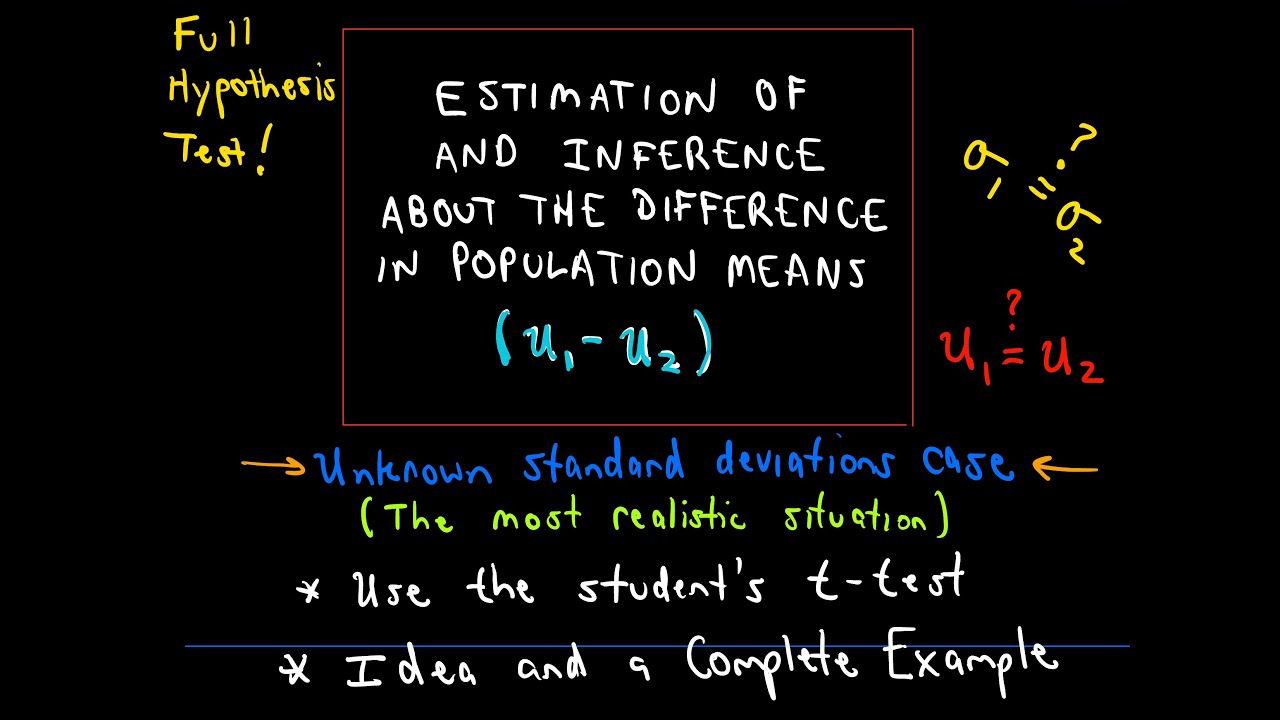 Full
Hypothesis
Test!
ESTIMATION OF
AND INFERENCE
ABOUT THE DIFFERENCE
IN POPULATION MEANS
(u₁ - u₂)
σ₁ =? σ₂
u₁ =? u₂
→ Unknown standard deviations case ←
(The most realistic situation)
* Use the student's t-test
* Idea and a Complete Example